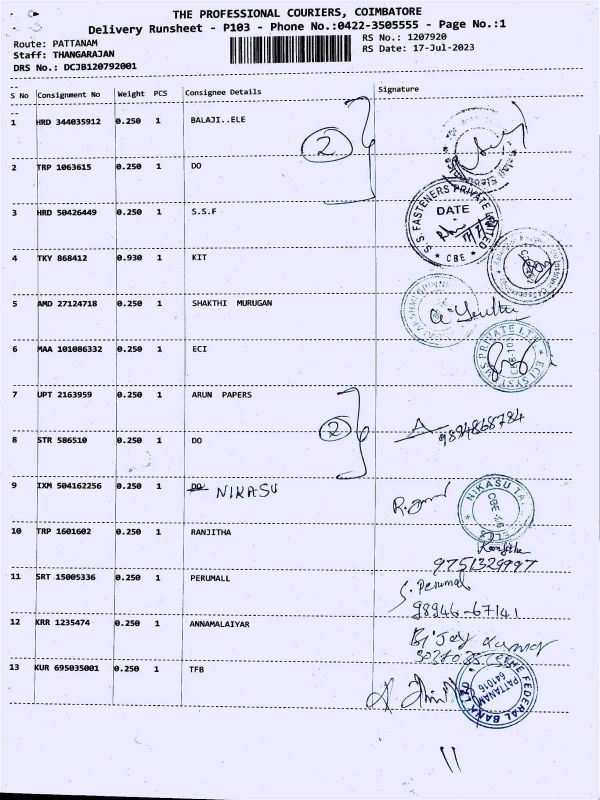 THE PROFESSIONAL COURIERS, COIMBATORE
Delivery Runsheet - P103 - Phone No.:0422-3505555 - Page No.:1
Route: PATTANAM
Staff: THANGARAJAN
DRS No.: DCJB120792001
RS No.: 1207920
RS Date: 17-Jul-2023
S No Consignment No Weight PCS Consignee Details Signature
1 HRD 344035912 0.250 1 BALAJI..ELE
2
2 TRP 1063615 0.250 1 DO
S.S. FASTENERS PRIVATE LIMITED
DATE
* CBE *
3 HRD 50426449 0.250 1 S.S.F
4 TKY 868412 0.930 1 KIT
5 AMD 27124718 0.250 1 SHAKTHI MURUGAN
6 MAA 101086332 0.250 1 ECI
7 UPT 2163959 0.250 1 ARUN PAPERS
2
9894868784
8 STR 586510 0.250 1 DO
9 IXM 504162256 0.250 1 DO NIKASU
NIKASU
10 TRP 1601602 0.250 1 RANJITHA
Ranjitha
9751329997
11 SRT 15005336 0.250 1 PERUMALL
S. Perumal
98946-67141
12 KRR 1235474 0.250 1 ANNAMALAIYAR
13 KUR 695035001 0.250 1 TFB
THE FEDERAL BANK LTD
PATTANAM
641016